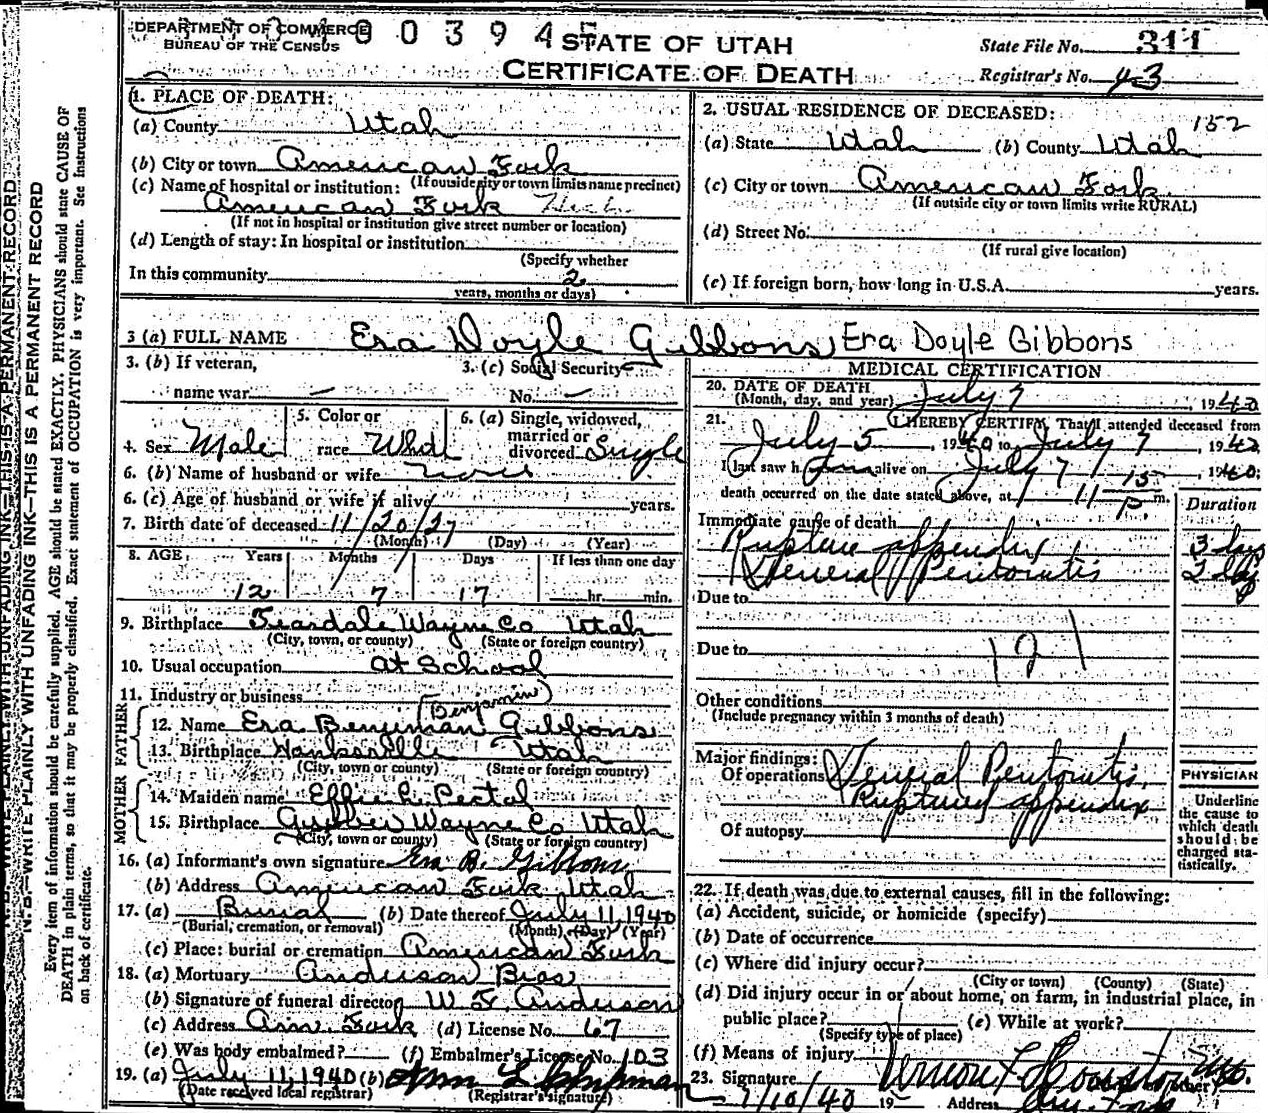 DEPARTMENT OF COMMERCE
BUREAU OF THE CENSUS
0 0 3 9 4
STATE OF UTAH
CERTIFICATE OF DEATH
State File No. 311
Registrar's No. 43
1. PLACE OF DEATH:
(a) County Utah
(b) City or town American Fork
(If outside city or town limits name precinct)
(c) Name of hospital or institution:
American Fork
(If not in hospital or institution give street number or location)
(d) Length of stay: In hospital or institution
(Specify whether
In this community 2
years, months or days)
2. USUAL RESIDENCE OF DECEASED:
152
(a) State Utah (b) County Utah
(c) City or town American Fork
(If outside city or town limits write RURAL)
(d) Street No.
(If rural give location)
(e) If foreign born, how long in U.S.A. years.
3 (a) FULL NAME Era Doyle Gibbons Era Doyle Gibbons
3. (b) If veteran,
name war —
3. (c) Social Security
No. —
4. Sex Male
5. Color or
race Whi
6. (a) Single, widowed,
married or
divorced Single
6. (b) Name of husband or wife none
6. (c) Age of husband or wife if alive years.
7. Birth date of deceased 11/20/27
(Month) (Day) (Year)
8. AGE Years Months Days If less than one day
12 7 17 hr. min.
9. Birthplace Teasdale Wayne Co Utah
(City, town, or county) (State or foreign country)
10. Usual occupation at School
11. Industry or business
(Benjamin)
FATHER
12. Name Era Benjiman Gibbons
13. Birthplace Hanksville Utah
(City, town or county) (State or foreign country)
MOTHER
14. Maiden name Effie L. Pectol
15. Birthplace Wayne Co Utah
(City, town or county) (State or foreign country)
16. (a) Informant's own signature Era B. Gibbons
(b) Address American Fork Utah
17. (a) Burial (b) Date thereof July 11, 1940
(Burial, cremation, or removal) (Month) (Day) (Year)
(c) Place: burial or cremation American Fork
18. (a) Mortuary Anderson Bros
(b) Signature of funeral director W. F. Anderson
(c) Address Am. Fork (d) License No. 67
(e) Was body embalmed? (f) Embalmer's License No. 103
19. (a) July 11, 1940 (b)
(Date received local registrar) (Registrar's signature)
MEDICAL CERTIFICATION
20. DATE OF DEATH
(Month, day, and year) July 7, 1940
21. I HEREBY CERTIFY, That I attended deceased from
July 5, 1940 to July 7, 1940
I last saw him alive on July 7, 1940;
death occurred on the date stated above, at 11 15 P. m.
Duration
Immediate cause of death
Rupture appendix 3 days
General Peritonitis 2 day
Due to
Due to 121
Other conditions
(Include pregnancy within 3 months of death)
Major findings:
Of operations General Peritonitis,
Ruptured appendix
Of autopsy
PHYSICIAN
Underline
the cause to
which death
should be
charged sta-
tistically.
22. If death was due to external causes, fill in the following:
(a) Accident, suicide, or homicide (specify)
(b) Date of occurrence
(c) Where did injury occur?
(City or town) (County) (State)
(d) Did injury occur in or about home, on farm, in industrial place, in
public place? (e) While at work?
(Specify type of place)
(f) Means of injury
23. Signature Vernon F Houston M.D.
7/10/40 19 Address Am. Fork
N. B.—WRITE PLAINLY WITH UNFADING INK—THIS IS A PERMANENT RECORD
N. B.—WRITE PLAINLY WITH UNFADING INK—THIS IS A PERMANENT RECORD
Every item of information should be carefully supplied. AGE should be stated EXACTLY. PHYSICIANS should state CAUSE OF
DEATH in plain terms, so that it may be properly classified. Exact statement of OCCUPATION is very important. See Instructions
on back of certificate.